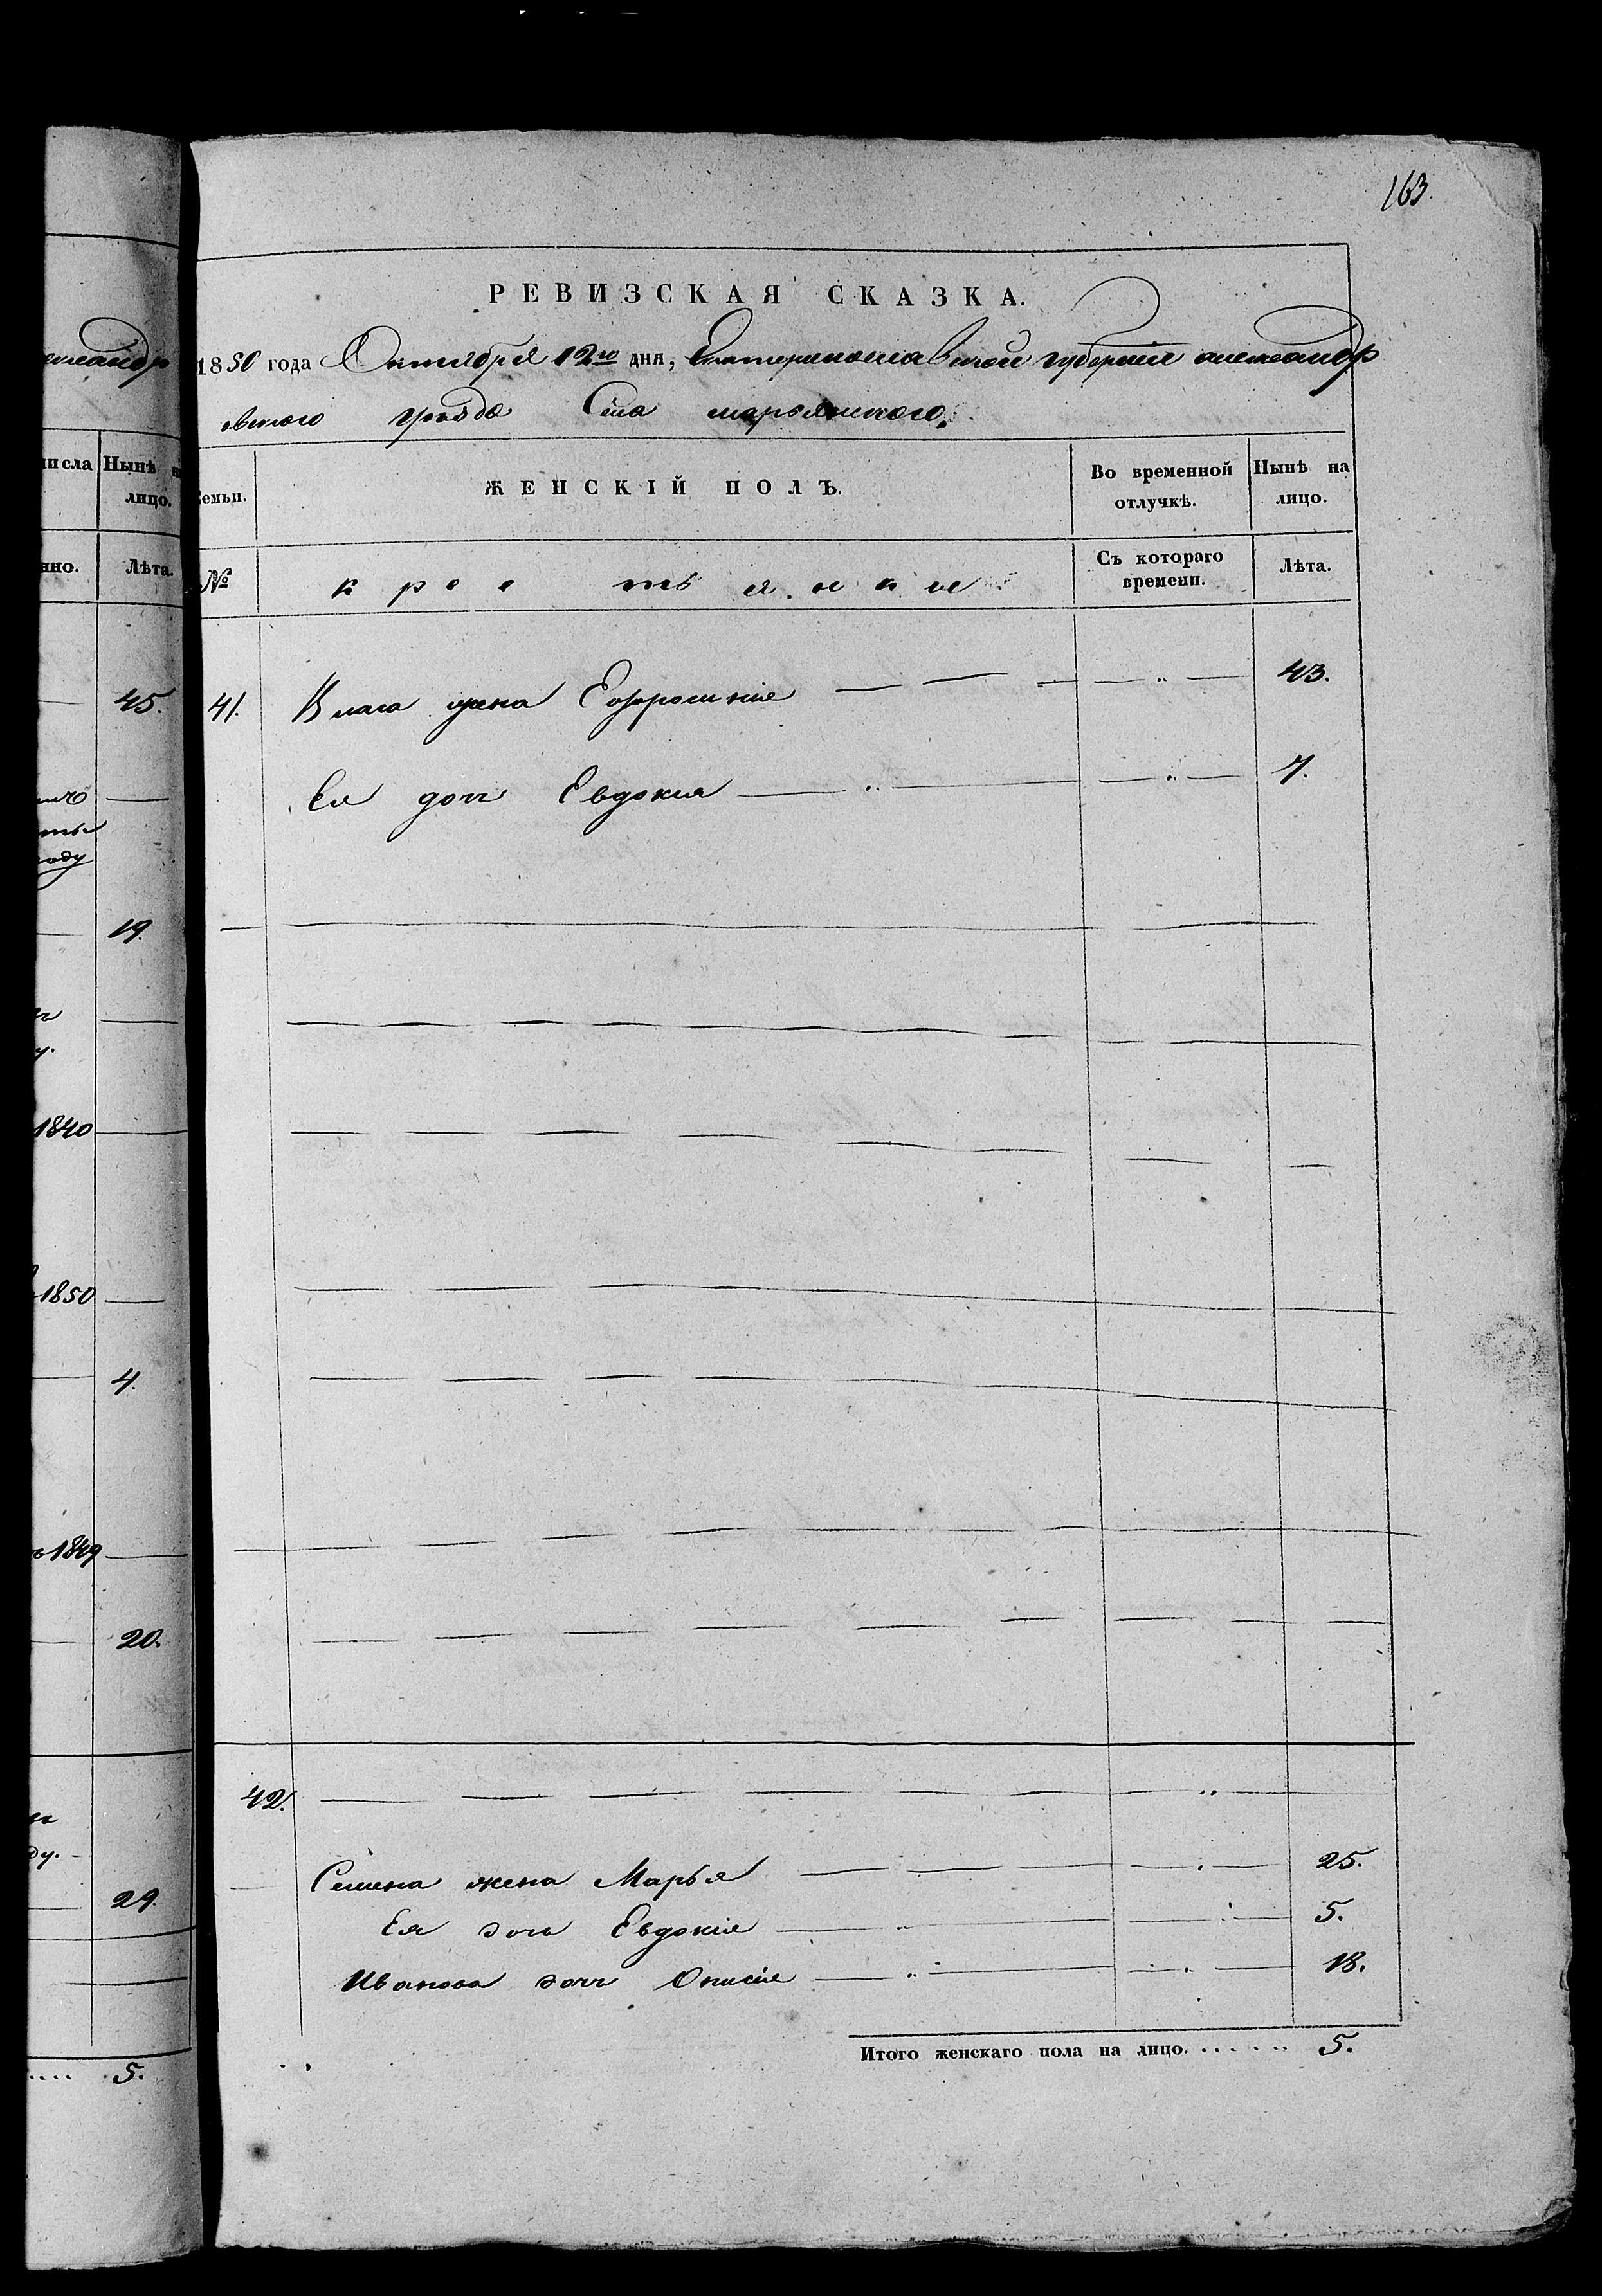 163.
РЕВИЗСКАЯ СКАЗКА.
1850 года Октября 12го дня, Екатеринославской губернiи александр
овского уѣзда Села марьянского.
Семьи.
ЖЕНСКІЙ ПОЛЪ.
Во временной отлучкѣ.
Нынѣ на лицо.
№
крестьянки
Съ котораго времени.
Лѣта.
41. Власа жена Ефросинiя 43.
Ея дочь Евдокия 7.
42.
Семена жена Марья 25.
Ея дочь Евдокiя 5.
Иванова дочь 18.
Итого женскаго пола на лицо. 5.
александр
числа
Нынѣ на
лицо.
Лѣта.
45.
году
19.
1840
1850
4.
1849
20.
29.
5.